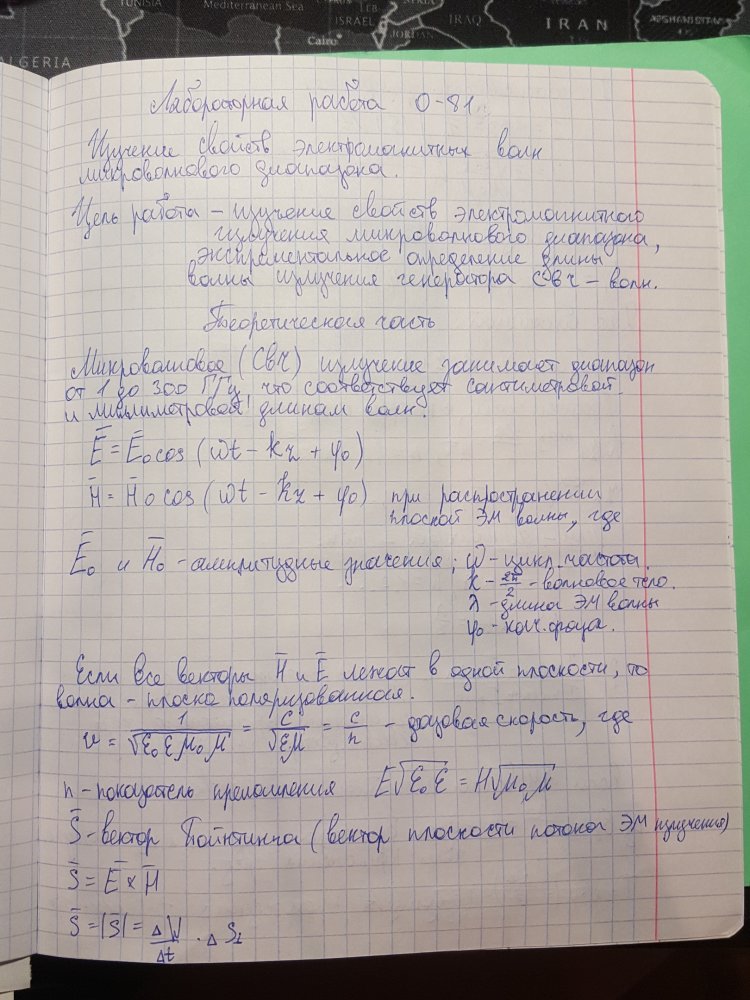 TUNISIA
Mediterranean Sea
ISRAEL
IRAQ
IRAN
AFGHANISTAN
Cairo
JORDAN
ALGERIA
Лабораторная работа О-81.
Изучение свойств электромагнитных волн
микроволнового диапазона.
Цель работа – изучение свойств электромагнитного
излучения микроволнового диапазона,
экспрементальное определение длины
волны излучения генератора СВЧ – волн.
Теоретическая часть
Микроволновое (СВЧ) излучение занимает диапазон
от 1 до 300 ГГц, что соответствует сантиметровой
и миллиметровой длинам волн.
E̅ = E̅₀ cos (ωt – kz + φ₀)
H̅ = H̅₀ cos (ωt – kz + φ₀) при распространении
плоской ЭМ волны, где
E̅₀ и H̅₀ – амплитудные значения; ω – цикл. частота.
k – 2π/2 – волновое тело.
λ – длина ЭМ волны
φ₀ – нач. фаза.
Если все векторы H̅ и E̅ лежат в одной плоскости, то
волна – плоско поляризованная.
v = 1/√(ε₀εμ₀μ) = c/√(εμ) = c/n – фазовая скорость, где
n – показатель преломления E√(ε₀ε) = H√(μ₀μ)
S̅ – вектор Пойнтинга (вектор плоскости потока ЭМ излучения)
S̅ = E̅ × H̅
S̅ = |S̅| = ΔW/Δt · ΔS⊥